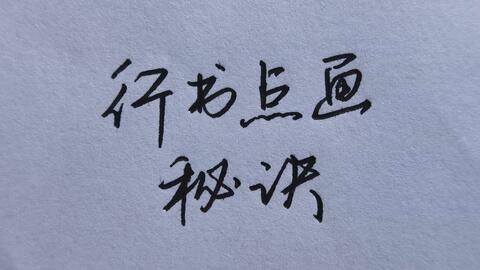 行书点画
秘诀